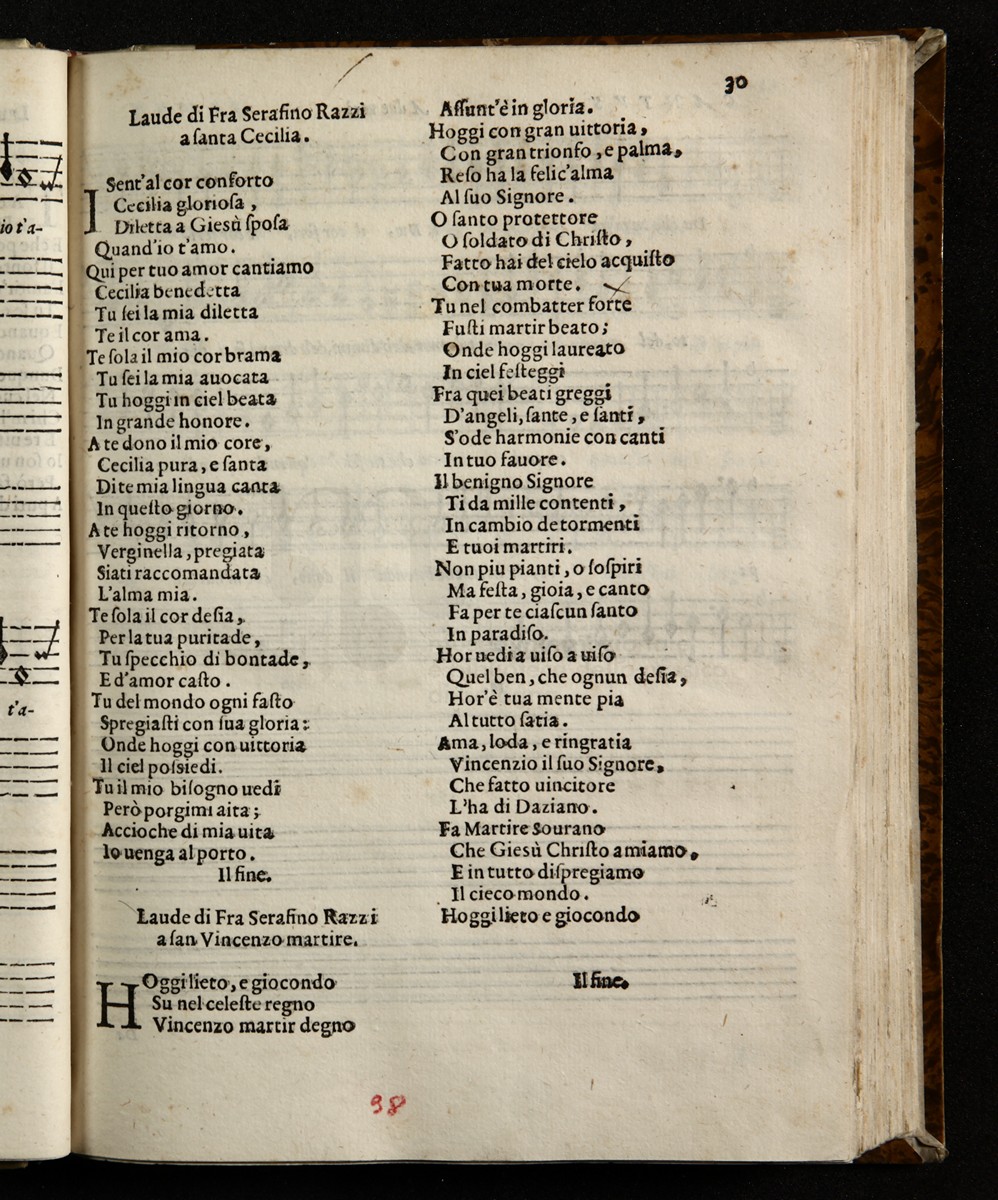 30
Laude di Fra Serafino Razzi
a ſanta Cecilia.
I Sent'al cor conforto
Cecilia glorioſa ,
Diletta a Giesù ſpoſa
Quand'io t'amo.
Qui per tuo amor cantiamo
Cecilia benedetta
Tu ſei la mia diletta
Te il cor ama.
Te ſola il mio cor brama
Tu ſei la mia auocata
Tu hoggi in ciel beata
In grande honore.
A te dono il mio core,
Cecilia pura, e ſanta
Di te mia lingua canta
In queſto giorno.
A te hoggi ritorno,
Verginella, pregiata
Siati raccomandata
L'alma mia.
Te ſola il cor deſia,
Per la tua puritade,
Tu ſpecchio di bontade,
E d'amor caſto.
Tu del mondo ogni faſto
Spregiaſti con ſua gloria:
Onde hoggi con uittoria
Il ciel poſsiedi.
Tu il mio biſogno uedi
Però porgimi aita;
Accioche di mia uita
Io uenga al porto.
Il fine.
Laude di Fra Serafino Razzi
a ſan Vincenzo martire.
HOggi lieto, e giocondo
Su nel celeſte regno
Vincenzo martir degno
Aſſunt'è in gloria.
Hoggi con gran uittoria,
Con gran trionfo, e palma,
Reſo ha la felic'alma
Al ſuo Signore.
O ſanto protettore
O ſoldato di Chriſto,
Fatto hai del cielo acquiſto
Con tua morte.
Tu nel combatter forte
Fuſti martir beato;
Onde hoggi laureato
In ciel feſteggi
Fra quei beati greggi
D'angeli, ſante, e ſanti,
S'ode harmonie con canti
In tuo fauore.
Il benigno Signore
Ti da mille contenti,
In cambio de tormenti
E tuoi martiri.
Non piu pianti, o ſoſpiri
Ma feſta, gioia, e canto
Fa per te ciaſcun ſanto
In paradiſo.
Hor uedi a uiſo a uiſo
Quel ben, che ognun deſia,
Hor'è tua mente pia
Al tutto ſatia.
Ama, loda, e ringratia
Vincenzio il ſuo Signore,
Che fatto uincitore
L'ha di Daziano.
Fa Martire Sourano
Che Giesù Chriſto amiamo,
E in tutto diſpregiamo
Il cieco mondo.
Hoggi lieto e giocondo
Il fine.
98
io t'a-
t'a-